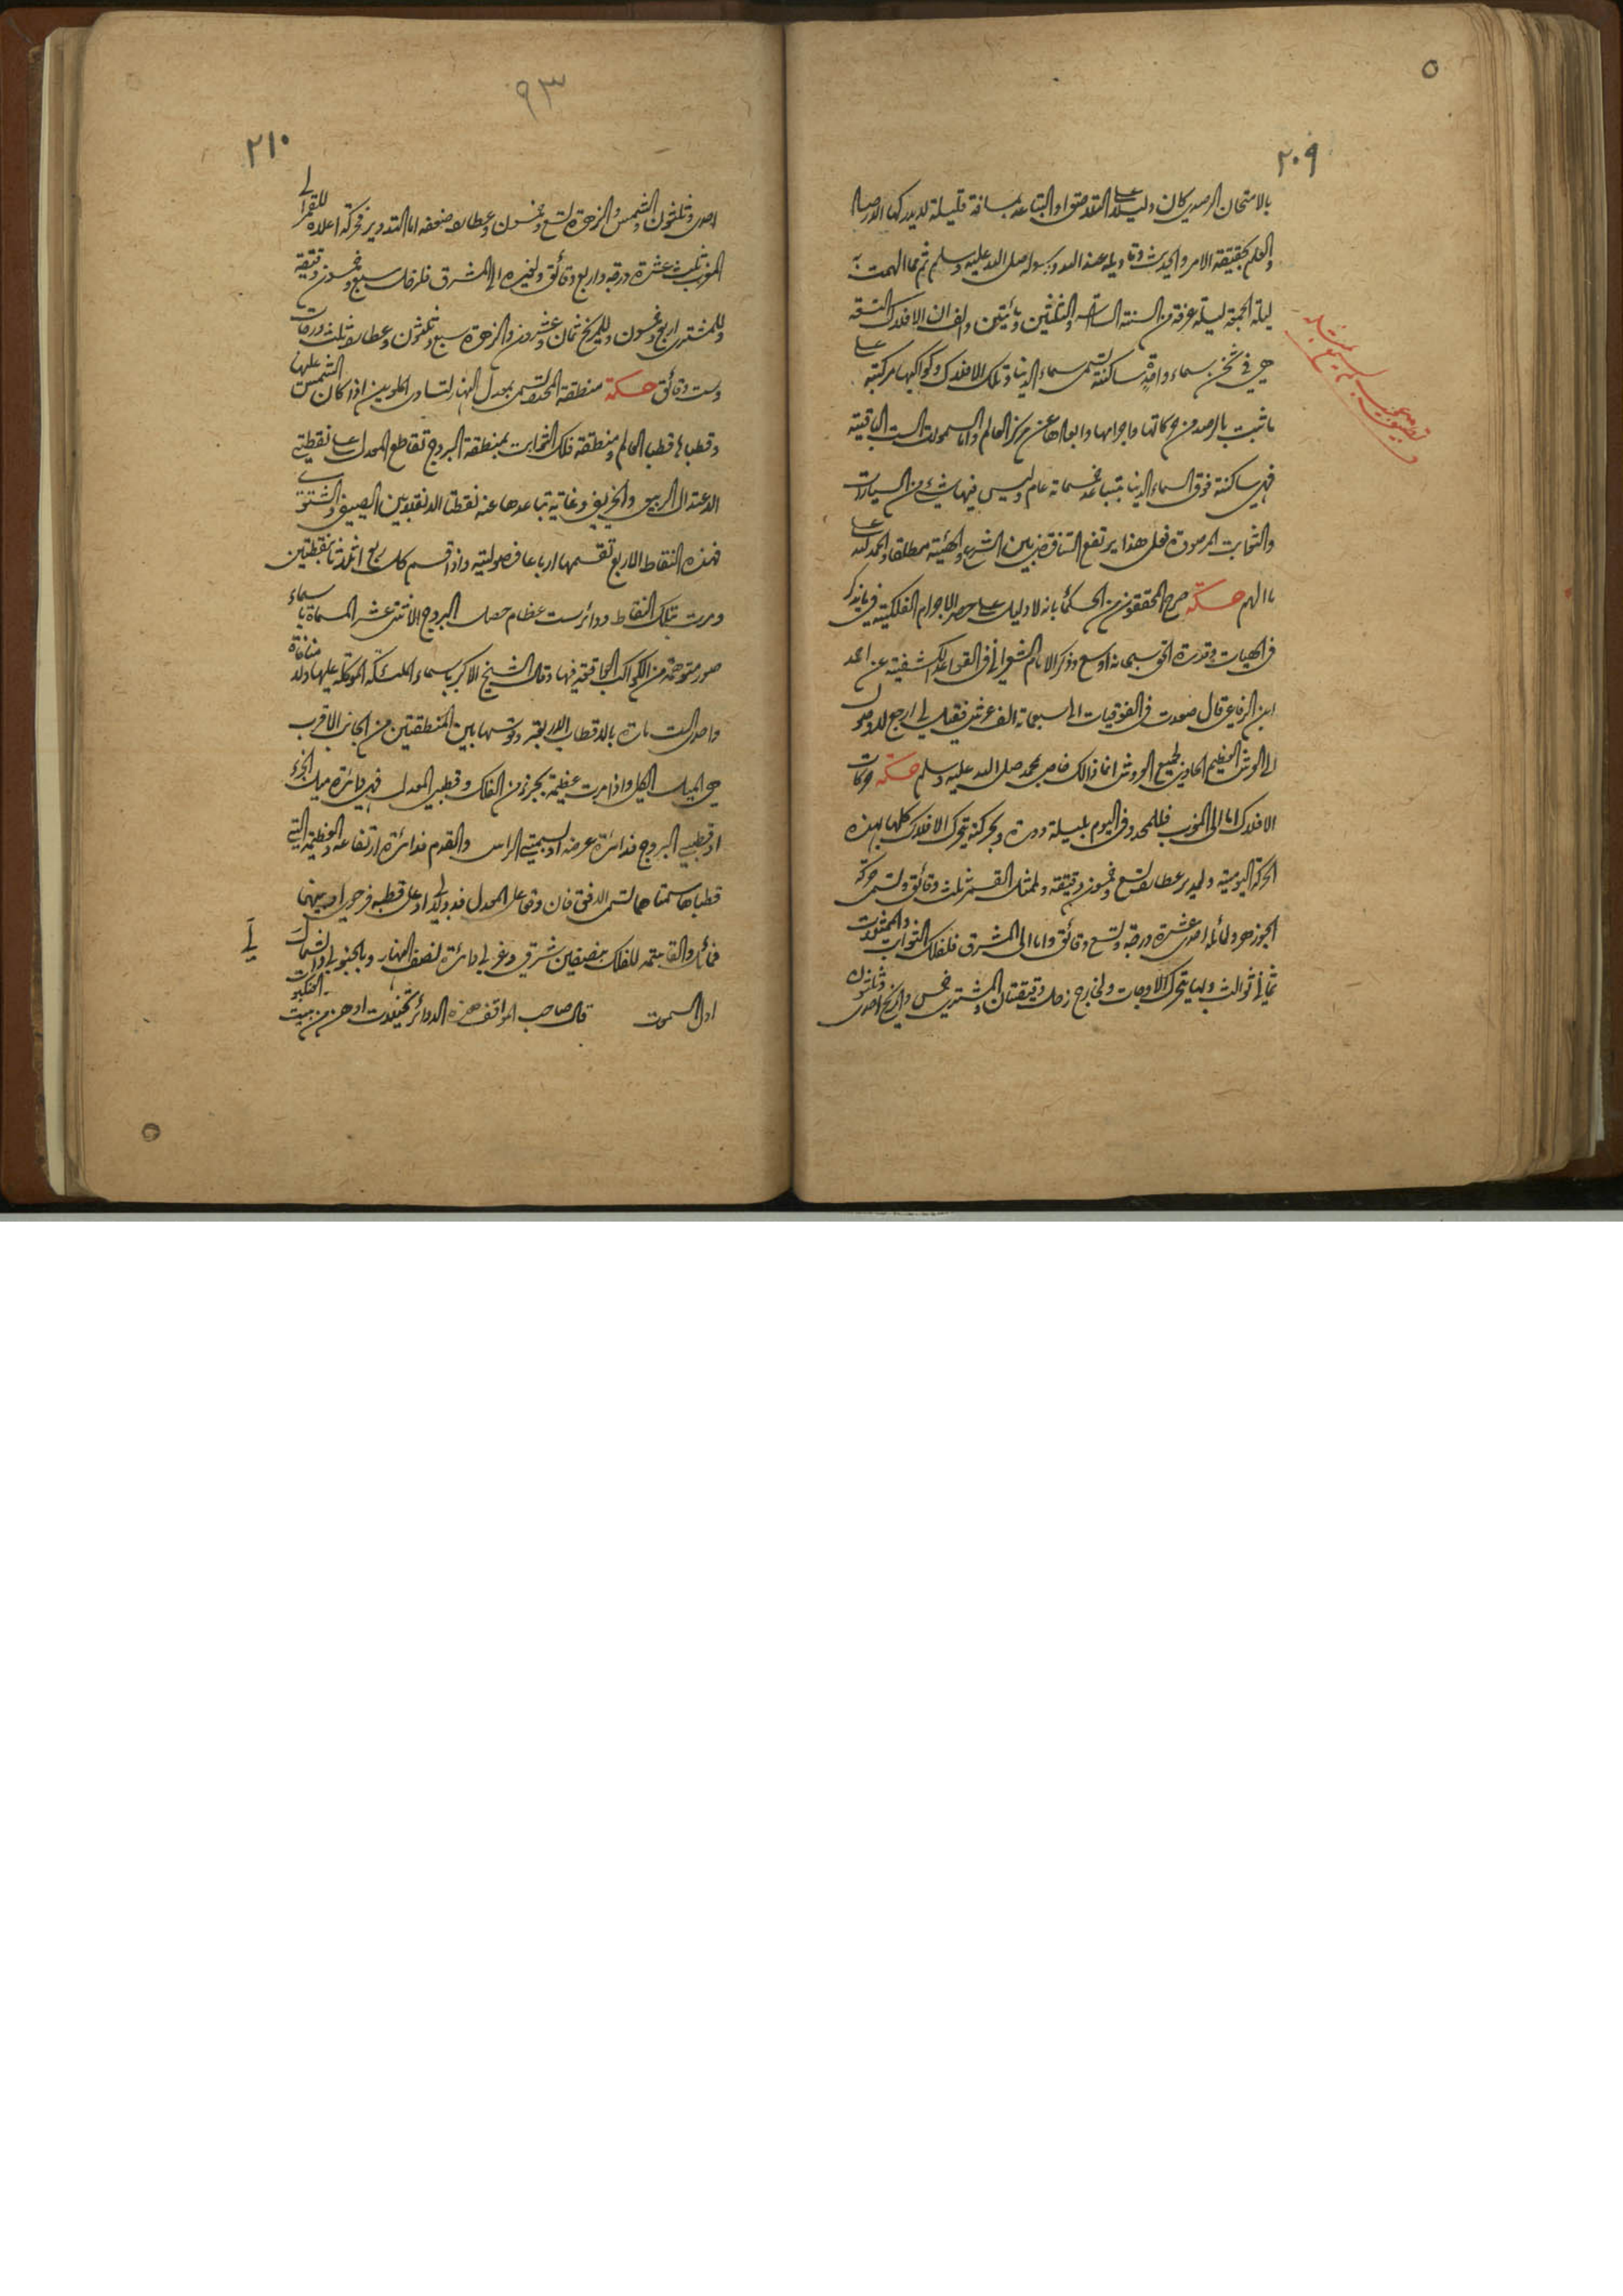 ٢٠٩
بالامتحان الرصدي كان دليلا على التقدم او التباعد بمسافة قليلة لا يدركها الارصاد
والعلم بحقيقة الامر والحديث وتاويله عند الله ورسوله صلى الله عليه وسلم ثم مما الهمت به
ليلة الجمعة ليلة عرفة من السنة السادسة والثلثين ومائتين والف ان الافلاك التسعة
هي في ثخن سماء واحدة ساكنة تسمى سماء الدنيا وتلك الافلاك وكواكبها مركبة على
ما ثبت بالرصد من حركاتها واجرامها وابعادها عن مركز العالم واما السموات الست الباقية
فهي ساكنة فوق السماء الدنيا بتباعد خمسمائة عام وليس فيها شئ من السيارات
والثوابت المرصودة فعلى هذا يرتفع التناقض بين الشرع والهيئة مطلقا والحمد لله على
ما الهم حكمة صرح المحققون من الحكماء بانه لا دليل على حصر الاجرام الفلكية فيما يذكر
في الهيات وقدرة الحق سبحانه اوسع وذكر الامام الشعراني في القواعد الكشفية عن احمد
ابن الرفاعي قال صعدت في الفوقيات الى سبعمائة الف عرش فقيل لي ارجع لا وصول
الى العرش العظيم الحاوي لجميع العروش انما ذلك خاص بمحمد صلى الله عليه وسلم حكمة حركات
الافلاك اما الى المغرب فللمحدد في اليوم بليلة دورة وبحركته يتحرك الافلاك كلها بهذه
الحركة اليومية ولمدير عطارد تسع وخمسون دقيقة ولممثل القمر ثلث دقائق وتسمى حركة
الجوزهر ولمائله احدى عشرة درجة وتسع دقائق واما الى المشرق فلفلك الثوابت والممثلات
ثماني ثوالث وبها يتحرك الاوجات ولخارج زحل دقيقتان والمشتري خمس والمريخ احدى وثلثون
٩٣
٢١٠
احدى وثلثون والشمس والزهرة تسع وخمسون وعطارد ضعفه اما التدوير فحركة اعلاه للقمر الى
المغرب ثلث عشرة درجة واربع دقائق ولغيره الى المشرق فلزحل سبع وخمسون دقيقة
وللمشتري اربع وخمسون وللمريخ ثمان وعشرون والزهرة سبع وثلثون وعطارد ثلث درجات
وست دقائق حكمة منطقة المحدد تسمى بمعدل النهار لتساوي الملوين اذا كان الشمس عليها
وقطباها قطبا العالم ومنطقة فلك الثوابت بمنطقة البروج تقاطع المعدل على نقطتي
الاعتدال الربيعي والخريفي وغاية تباعدها عنه نقطتا الانقلابين الصيفي والشتوي
فهذه النقاط الاربع تقسمها ارباعا فصولية واذا قسم كل ربع اثلاثا بنقطتين
ومرت بتلك النقاط دوائر ست عظام حصل البروج الاثنى عشر المسماة باسماء
صور متوهمة من الكواكب الواقعة فيها وقال الشيخ الاكبر باسماء الملائكة الموكلة عليها ولا منافاة
واحدى الست مارة بالاقطاب الاربعة وقوسها بين المنطقتين من الجانب الاقرب
هي الميل الكلي واذا مرت عظيمة بجزء من الفلك وقطبي المعدل فهي دائرة ميل الجزء
او قطبي البروج فدائرة عرضه او بسمتي الراس والقدم فدائرة ارتفاعه والعظيمة التي
قطباها سمتاهما تسمى الافق فان وقعا على المعدل فدولابي او على قطبه فرحوي او بينهما
فمائل والقاسمة للفلك بنصفين شرقي وغربي دائرة نصف النهار وبالجنوبي والشمالي دائرة
اول السموت قال صاحب المواقف هذه الدوائر تخيلات اوهن من بيت العنكبوت